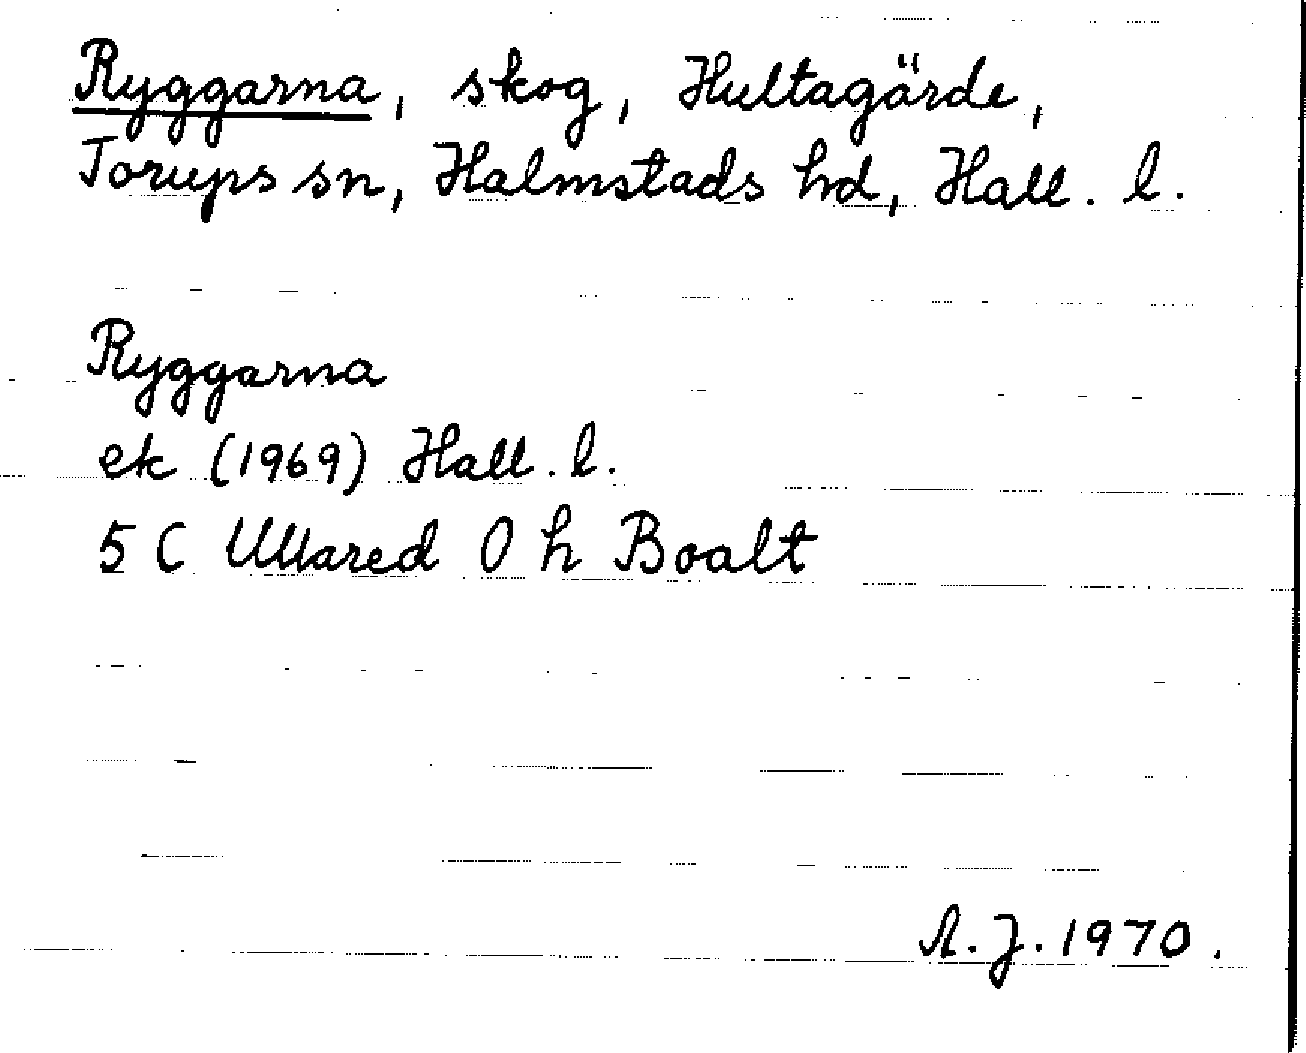 Ryggarna, skog, Hultagärde,
Torups sn, Halmstads hd, Hall. l.
Ryggarna
ek (1969) Hall. l.
5 C Ullared 0 h Boalt
A. J. 1970.